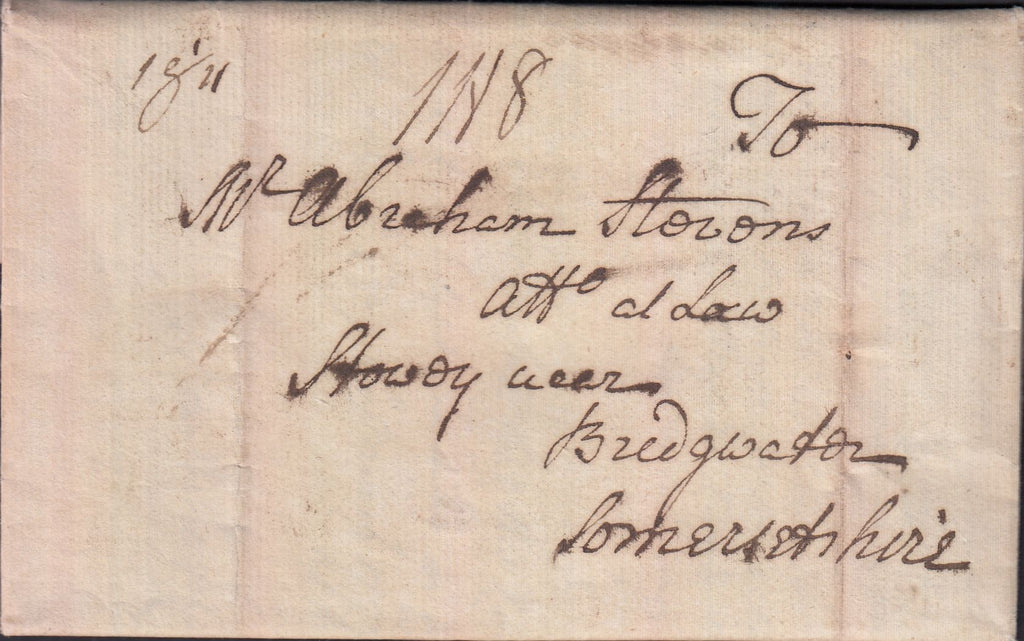 To
Mr Abraham Stevens
Atto at Law
Stowey near
Bridgwater
Somersetshire